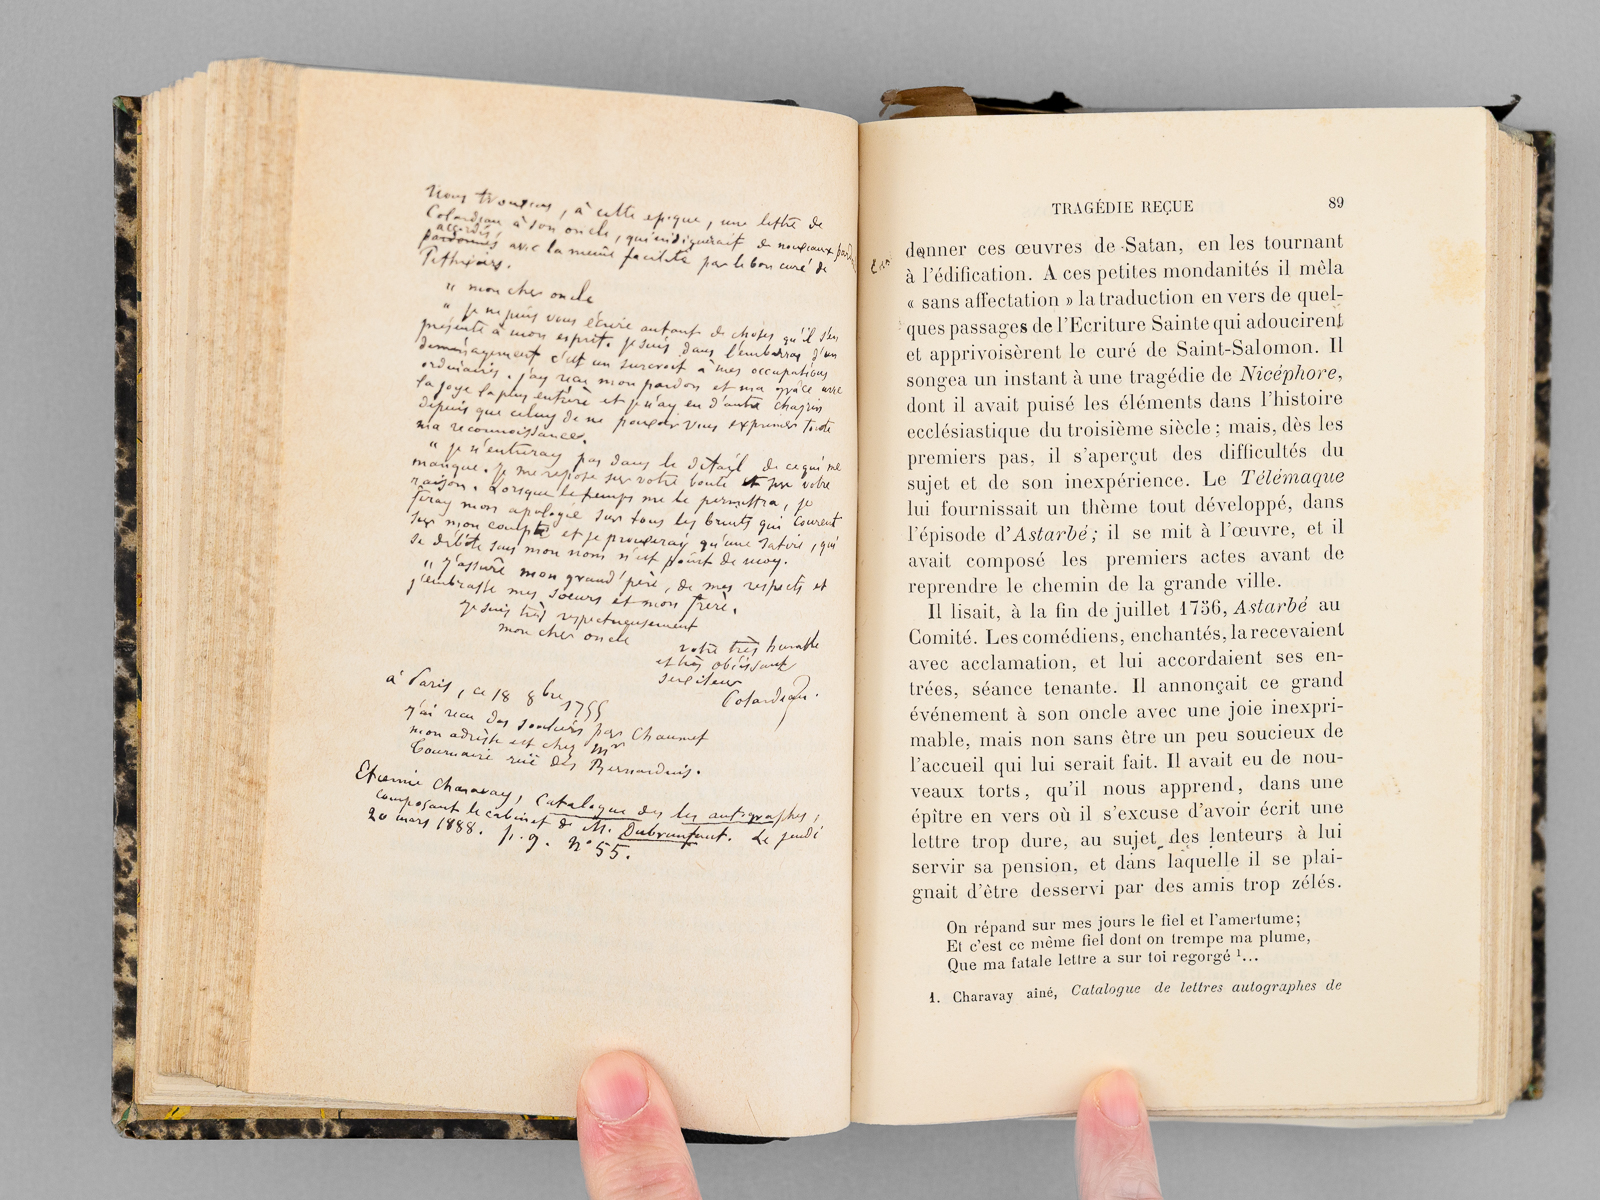 Nous trouvons, à cette epoque, une lettre de
Colardeau à son oncle, qui indiquerait de nouveaux
accordés,
pardonnés avec la même facilité par le bon curé de
Pithiviers.
" mon cher oncle
" je ne puis vous écrire autant de choses qu'il s'en
présente à mon esprit. je suis dans l'embarras d'un
demenagement c'est un surcroit à mes occupations
ordinaires. j'ay reçu mon pardon et ma grâce avec
la joye la plus entière et je n'ay eu d'autre chagrin
depuis que celuy de ne pouvoir vous exprimer toute
ma reconnoissance.
" je n'entreray pas dans le détail de ce qui me
manque. je me repose sur votre bonté et sur votre
raison. Lorsque le temps me le permettra, je
feray mon apologie sur tous les bruits qui courent
sur mon compte et je prouveray qu'une satire, qui
se débite sous mon nom n'est point de moy.
" j'assure mon grand'père, de mes respects et
j'embrasse mes soeurs et mon frère.
je suis très respectueusement
mon cher oncle
votre très humble
et très obéissant
serviteur
Colardeau.
à Paris, ce 18 8bre 1755
j'ai reçu des souliers par Chaumet
mon adresse est chez Mr
rue des Bernardins.
Etienne Charavay, Catalogue des autographes,
composant le cabinet de M. Dubrunfaut. Le jeudi
20 mars 1888. p. 9. N° 55.
TRAGÉDIE REÇUE 89
donner ces œuvres de Satan, en les tournant
à l'édification. A ces petites mondanités il mêla
« sans affectation » la traduction en vers de quel-
ques passages de l'Ecriture Sainte qui adoucirent
et apprivoisèrent le curé de Saint-Salomon. Il
songea un instant à une tragédie de Nicéphore,
dont il avait puisé les éléments dans l'histoire
ecclésiastique du troisième siècle ; mais, dès les
premiers pas, il s'aperçut des difficultés du
sujet et de son inexpérience. Le Télémaque
lui fournissait un thème tout développé, dans
l'épisode d'Astarbé ; il se mit à l'œuvre, et il
avait composé les premiers actes avant de
reprendre le chemin de la grande ville.
Il lisait, à la fin de juillet 1756, Astarbé au
Comité. Les comédiens, enchantés, la recevaient
avec acclamation, et lui accordaient ses en-
trées, séance tenante. Il annonçait ce grand
événement à son oncle avec une joie inexpri-
mable, mais non sans être un peu soucieux de
l'accueil qui lui serait fait. Il avait eu de nou-
veaux torts, qu'il nous apprend, dans une
épître en vers où il s'excuse d'avoir écrit une
lettre trop dure, au sujet des lenteurs à lui
servir sa pension, et dans laquelle il se plai-
gnait d'être desservi par des amis trop zélés.
On répand sur mes jours le fiel et l'amertume ;
Et c'est ce même fiel dont on trempe ma plume,
Que ma fatale lettre a sur toi regorgé ¹...
1. Charavay aîné, Catalogue de lettres autographes de